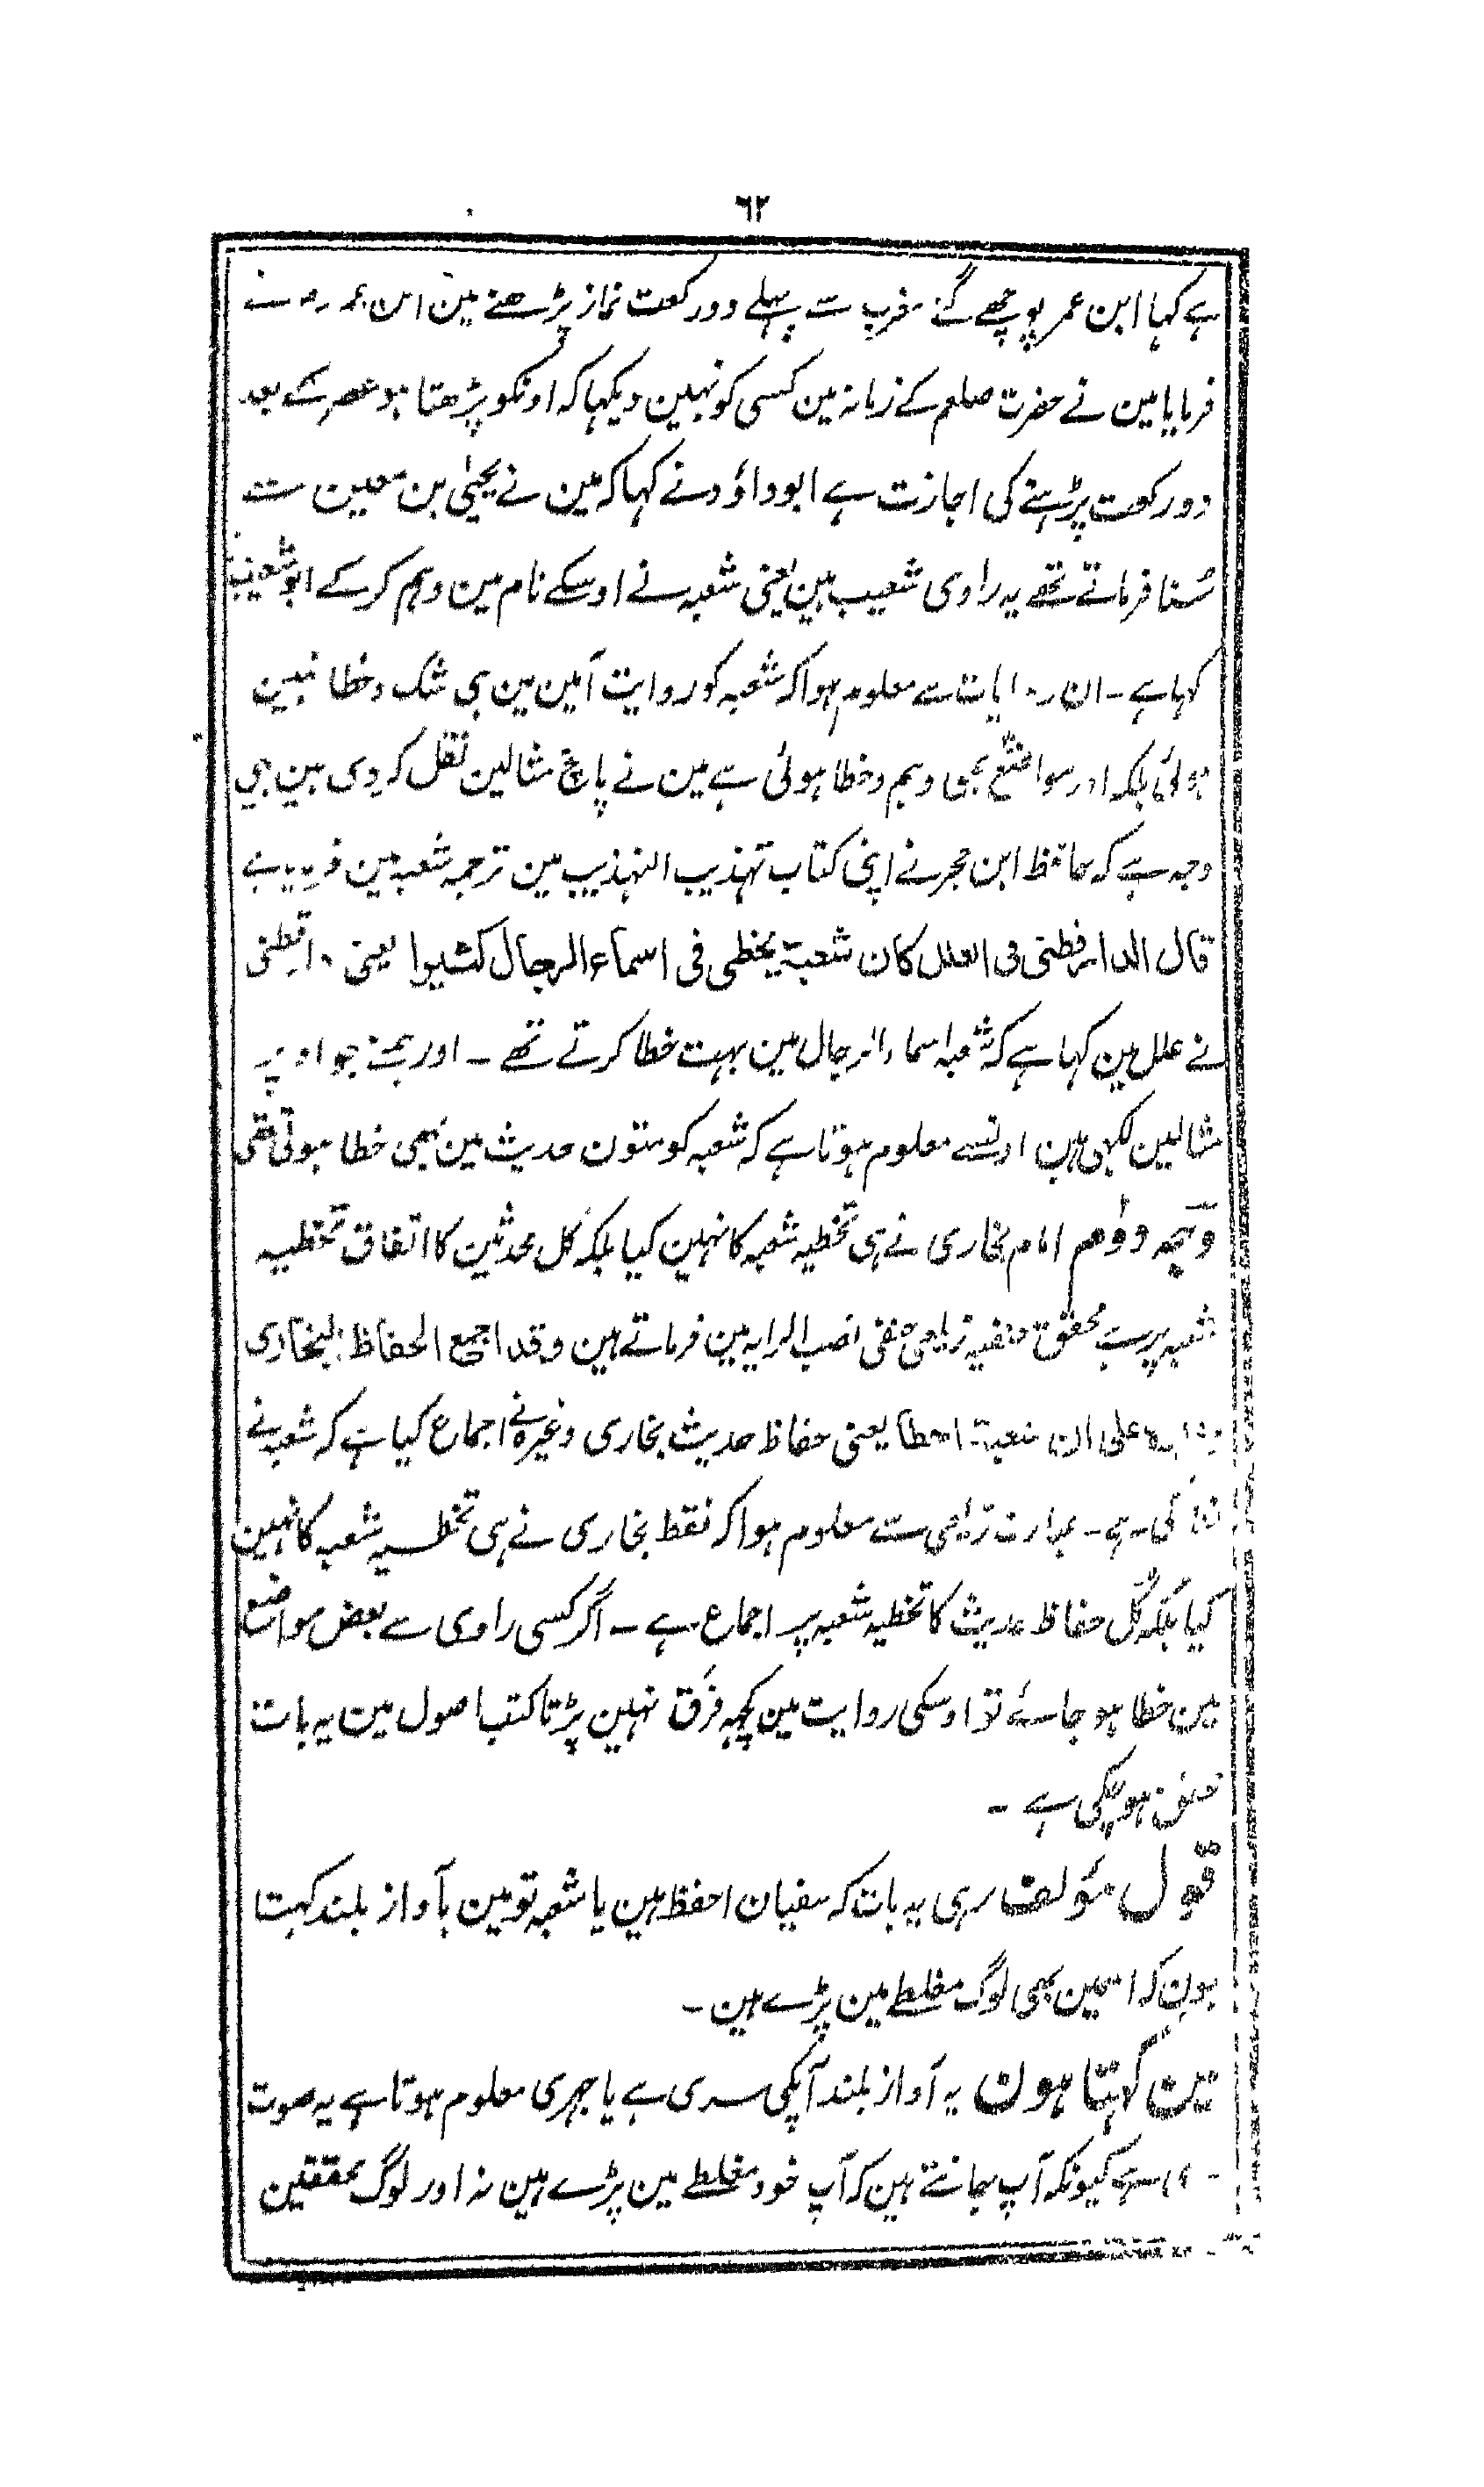 ٦٢
ہے کہا ابن عمر پوچھے گئے مغرب سے پہلے دو رکعت نماز پڑھنے مین ابن عمر رضنے
فرمایا مین نے حضرت صلعم کے زمانہ مین کسی کو نہین دیکہا کہ اونکو پڑھتا ہو عصر کے بعد
دو رکعت پڑہنے کی اجازت ہے ابوداؤد نے کہا کہ مین نے یحیٰی بن معین سے
سُنا فرماتے تھے یہ راوی شعیب ہین یعنی شعبہ نے اوسکے نام مین وہم کرکے ابوشعیب
کہا ہے ۔ ان روایات سے معلوم ہوا کہ شعبہ کو روایت آمین مین ہی شک وخطا نہین
ہوئی بلکہ اور مواضع مین وہم وخطا ہوئی ہے مین نے پانچ مثالین نقل کردی ہین یہی
وجہ ہے کہ حافظ ابن حجر نے اپنی کتاب تہذیب التہذیب مین ترجمہ شعبہ مین
قال الدارقطنی فی العلل کان شعبۃ یخطی فی اسماء الرجال کثیرا یعنی دارقطنی
نے علل مین کہا ہے کہ شعبہ اسماء الرجال مین بہت خطا کرتے تھے ۔ اور ہمنے جو اوپر
مثالین لکہی ہین اونسے معلوم ہوتا ہے کہ شعبہ کو متون حدیث مین بھی خطا ہوتی تھی
وجہ دوم امام بخاری نے ہی تخطیہ شعبہ کا نہین کیا بلکہ کل محدثین کا اتفاق تخطیہ
شعبہ پر ہے محقق حنفیہ زیلعی حنفی نصب الرایہ مین فرماتے ہین وقد اجمع الحفاظ البخاری
وغیرہ علی ان شعبۃ اخطأ یعنی حفاظ حدیث بخاری وغیرہ نے اجماع کیا ہے کہ شعبہ نے
خطا کی ہے ۔ عبارت زیلعی سے معلوم ہوا کہ فقط بخاری نے ہی تخطیہ شعبہ کا نہین
کیا بلکہ کُل حفاظ حدیث کا تخطیہ شعبہ پر اجماع ہے ۔ اگر کسی راوی سے بعض مواضع
مین خطا ہو جائے تو اوسکی روایت مین کچہہ فرق نہین پڑتا کتب اصول مین یہ بات
ہوچکی ہے ۔
قول مؤلف رہی یہ بات کہ سفیان احفظ ہین یا شعبہ تو مین بآواز بلند کہتا
ہون کہ اسمین بھی لوگ مغلطے مین پڑے ہین ۔
مین کہتا ہون یہ آواز بلند آپکی سری ہے یا جہری معلوم ہوتا ہے یہ صوت
سری ہے کیونکہ آپ جانتے ہین کہ آپ خود مغلطے مین پڑے ہین نہ اور لوگ محققین